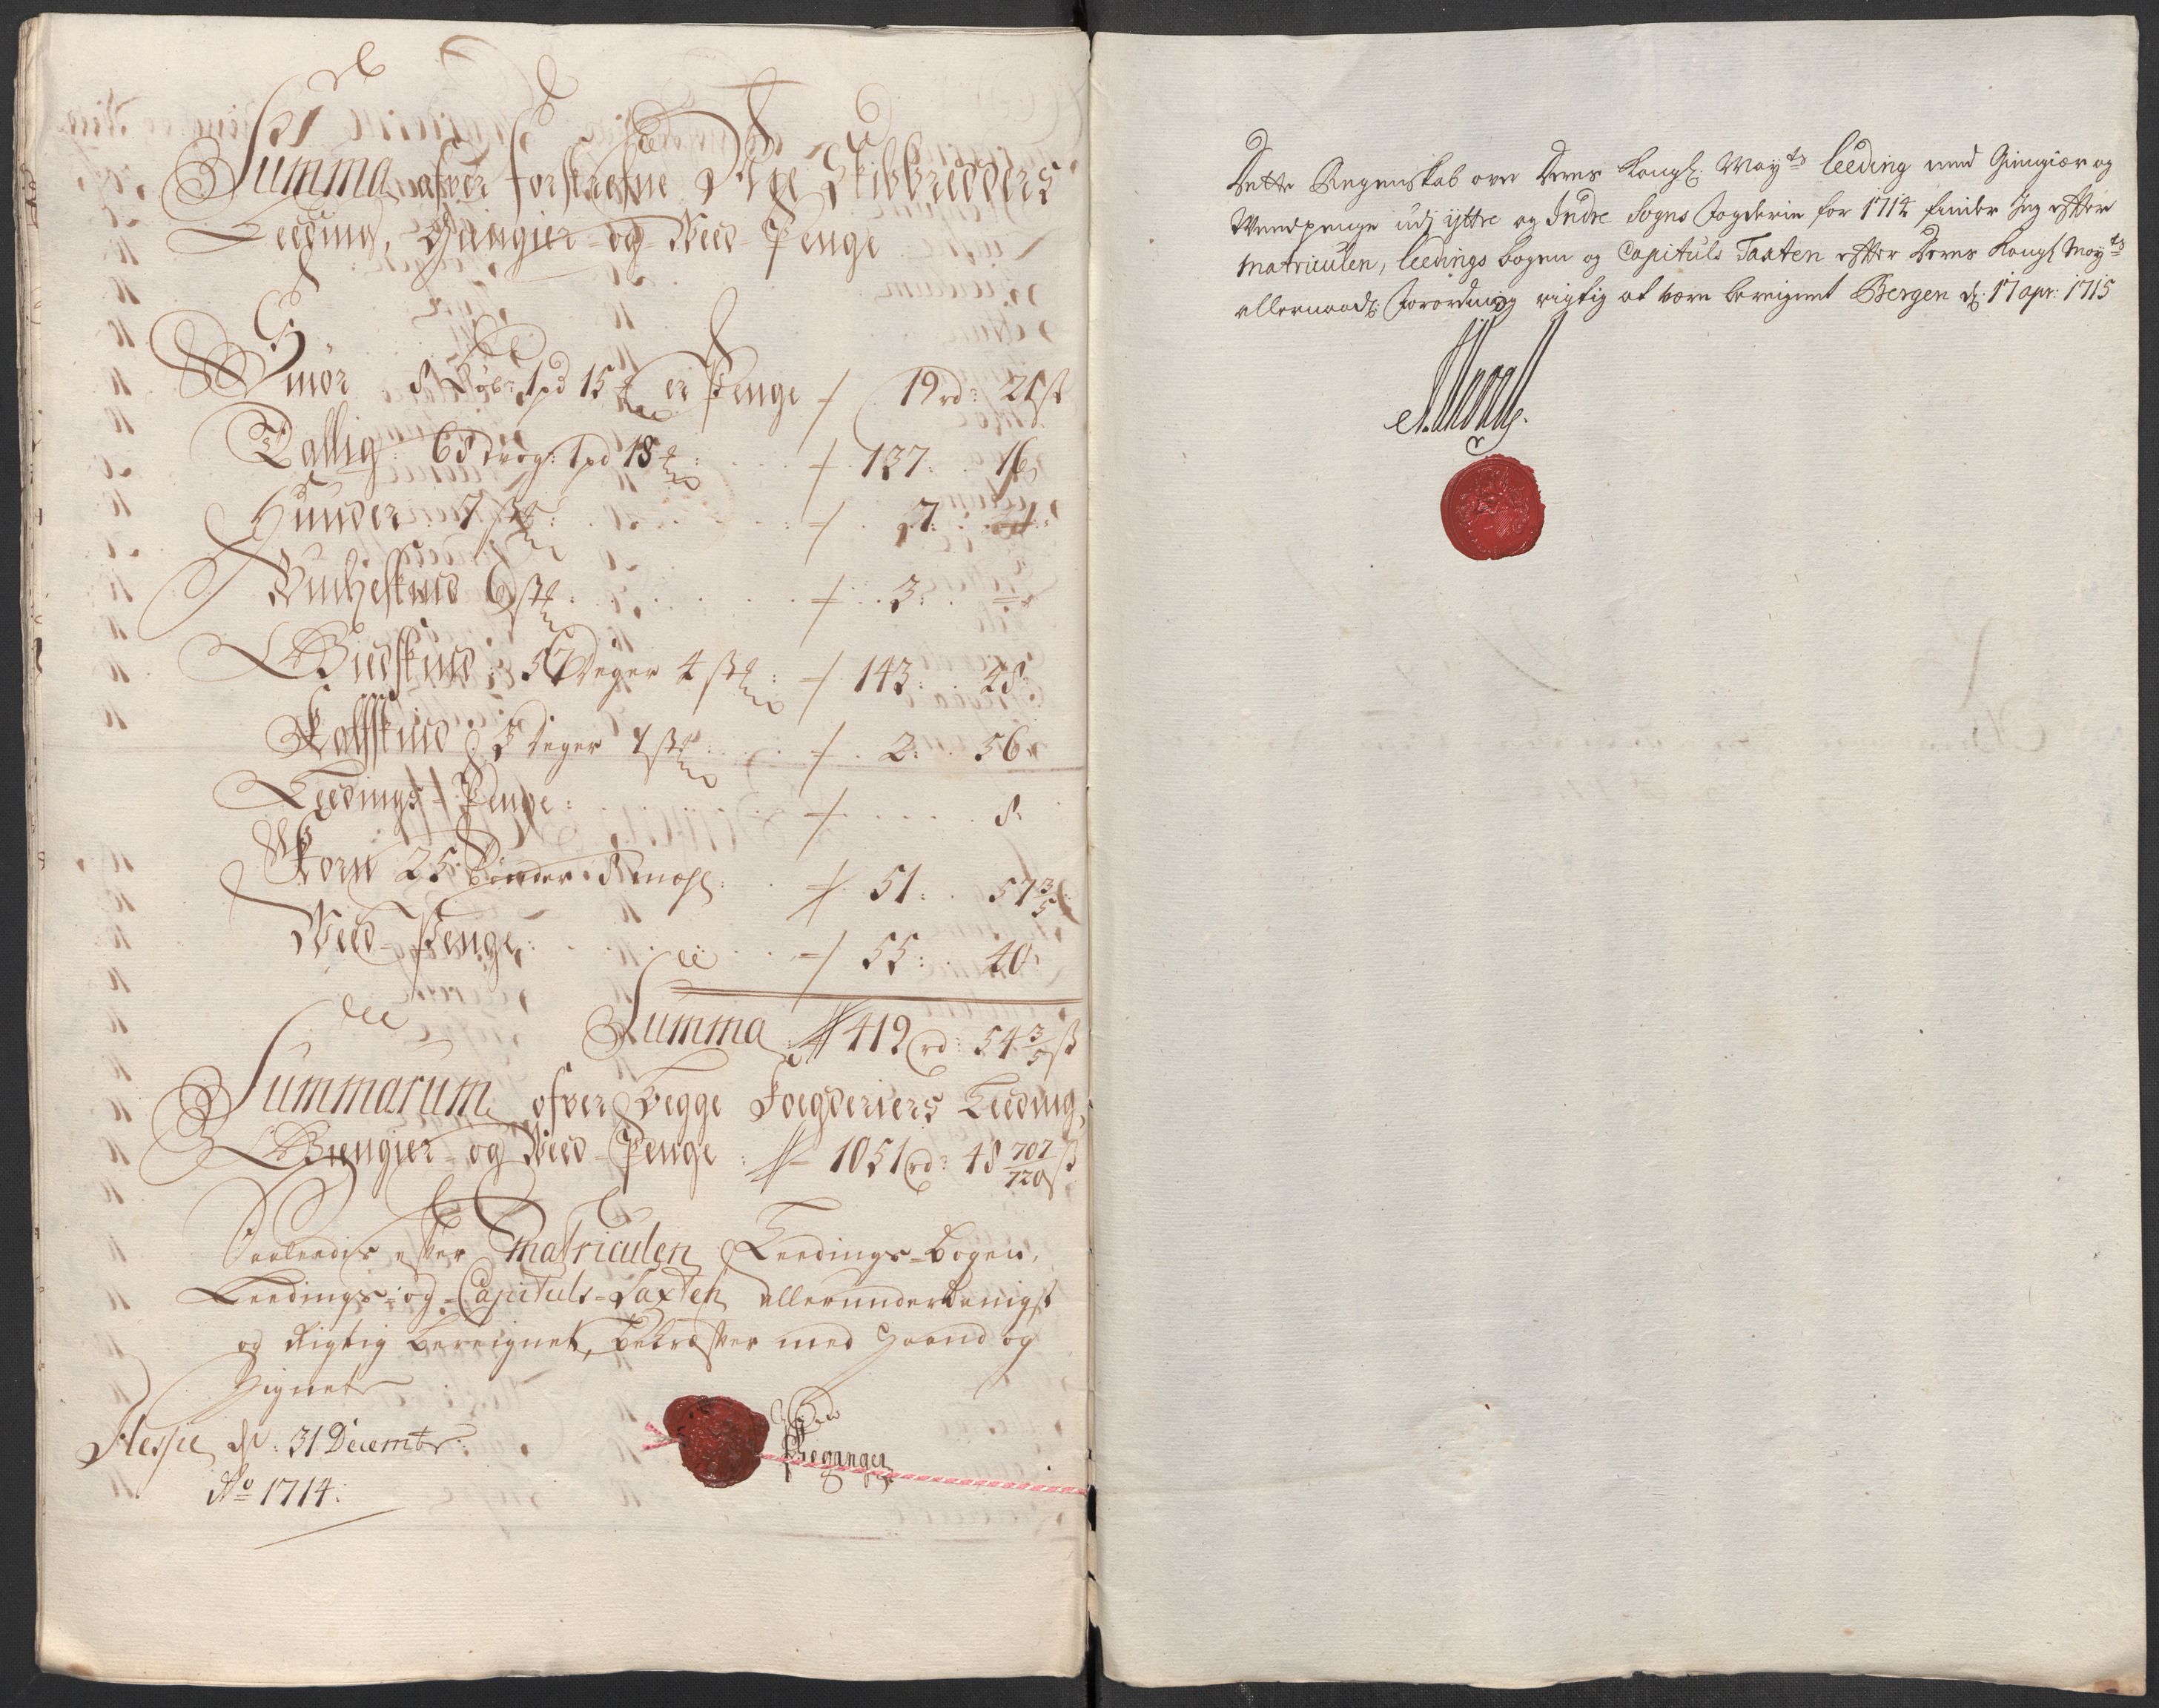 Summa ofver forskrefne Skibbreders
Leeding, Giengier og Wed-Penge
Smör 8 Löb: 1pd 15 er Penge 19rd: 21s
Tallig: 68 wog: 1pd 18 137: 16
Hunder: 7 st: 7:
Buckeskind 6 st: 3:
Giedskind: 57 deger 4 st: 143: 48
Kalfskind: 5 deger 7 st: 2: 56
Leedings-Penge: 8
Korn 25 tönder 51: 57 3/5
Wed-Penge: 55: 40
Summa 419rd: 54 3/5 s
Summarum ofver begge Foegderiers Leeding,
Giengier- og Wed-Penge: 1051rd: 48 707/720 s
Saaleedis efter Matriculen, Leedings-bogen,
Leedings- og Capituls-Taxten allerunderdanigst
og Rigtig bereignet, bekræfter med Haand og
Signet
Flesje d: 31 Decembr:
Ao 1714.
Dette Regenskab over Deres Kongl: Mayts Leeding med Giengiær og
Weedpenge udj yttre og Indre Sogns fogderie for 1714 finder Jeg efter
Matriculen, leedings bogen og Capituls Taxten efter Deres Kongl Mayts
allernaadl: forordning rigtig at være bereignet Bergen d: 17 apr: 1715